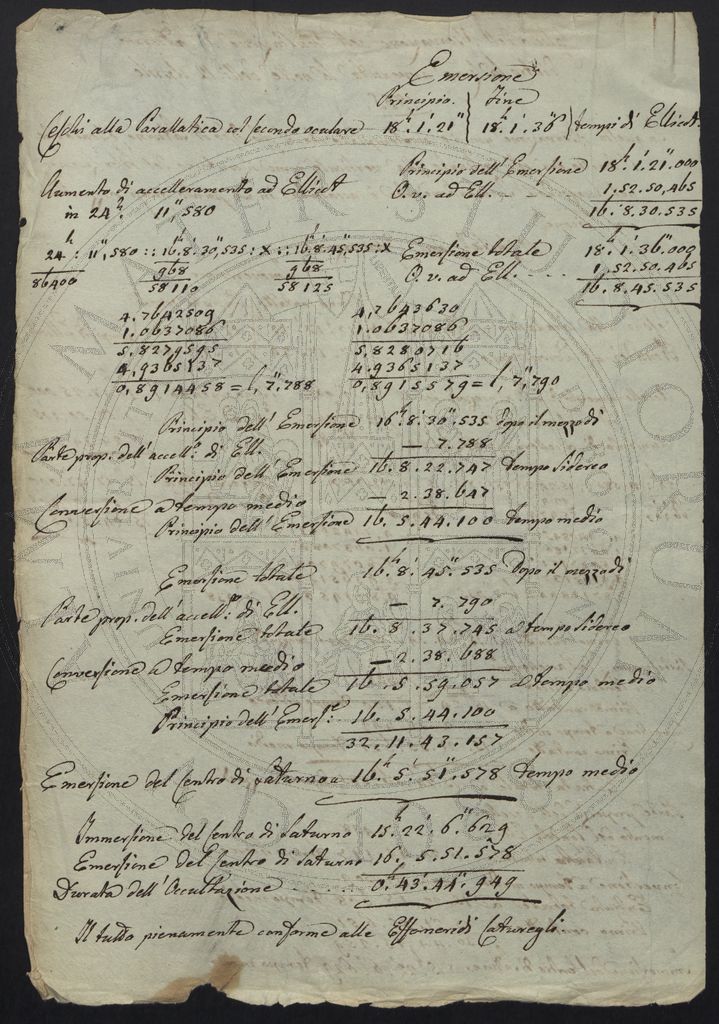 Emersione
Principio. Fine
Ceschi alla Parallatica col secondo oculare 18.h 1.' 21." 18.h 1.' 36." tempi di Ellicot.
Principio dell' Emersione 18.h 1.' 21." 000
Aumento di accelleramento ad Ellicot O. v. ad Ell. 1.52.50.465
in 24.h 11", 580 16. 8. 30. 535
24.h : 11", 580 :: 16.h 8.' 30", 535 : X :: 16.h 8.' 45", 535 : X Emersione totale 18.h 1.' 36." 000
86400 968 968 O. v. ad Ell. 1. 52. 50. 465
58110 58125 16. 8. 45. 535
4.7642509 4,7643630
1.0637086 1.0637086
5.8279595 5.8280716
4.9365137 4.9365137
0,8914458 = l, 7", 788 0,8915579 = l, 7", 790
Principio dell' Emersione 16.h 8.' 30." 535 dopo il mezzodi
Parte prop. dell' accell.o di Ell. — 7. 788
Principio dell' Emersione 16. 8. 22. 747 tempo sidereo
Conversione a tempo medio — 2. 38. 647
Principio dell' Emersione 16. 5. 44. 100 tempo medio
Emersione totale 16.h 8.' 45." 535 Dopo il mezzodi
Parte prop. dell' accell.o di Ell. — 7. 790
Emersione totale 16. 8. 37. 745 a tempo sidereo
Conversione a tempo medio — 2. 38. 688
Emersione totale 16. 5. 59. 057 a tempo medio
Principio dell' Emers.e 16. 5. 44. 100
32. 11. 43. 157
Emersione del Centro di Saturno a 16.h 5.' 51." 578 tempo medio
Immersione del Centro di Saturno 15.h 22.' 6." 629
Emersione del Centro di Saturno 16. 5. 51. 578
Durata dell' Occultazione 0.h 43.' 44." 949
Il tutto pienamente conforme alle Effemeridi Caturegli.